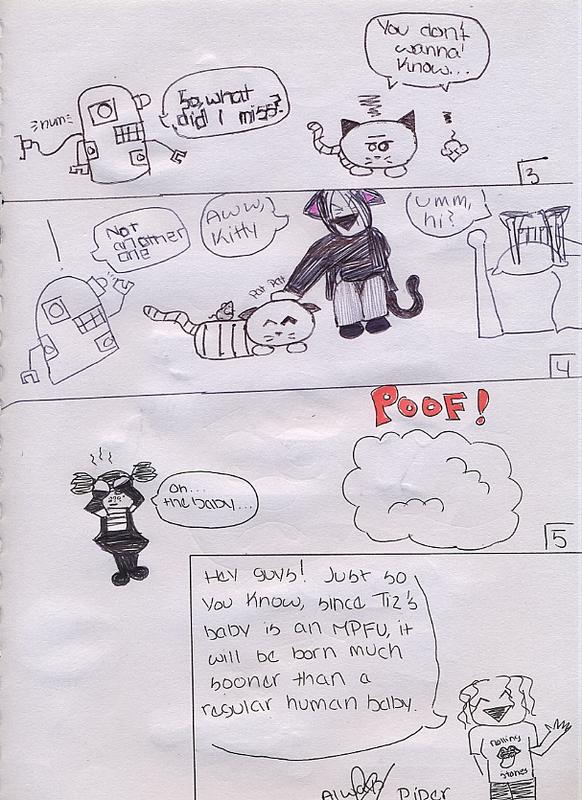 You don't
wanna
know...
=num=
So, what
did I miss?
3
!
Not
another
one
Aww,
Kitty
umm,
hi?
Pat Pat
4
POOF!
oh...
the baby...
5
Hey guys! Just so
you know, since Tiz's
baby is an MPFU, it
will be born much
sooner than a
regular human baby.
Rolling
Stones
Piper